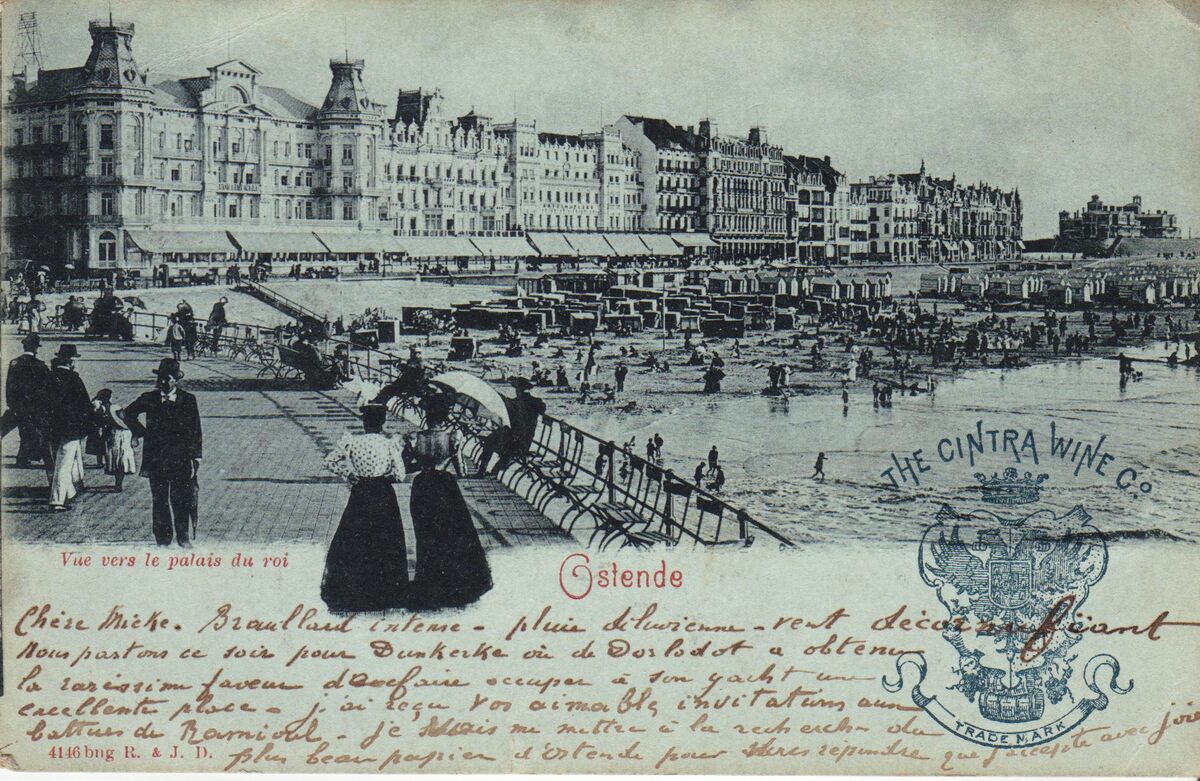 THE CINTRA WINE Co
Vue vers le palais du roi
Ostende
Chère Micke. Brouillard intense - pluie diluvienne - vent décornifiant
Nous partons ce soir pour Dunkerke où de Dorlodot a obtenu
la rarissime faveur de faire occuper à son yacht une
excellente place - j'ai reçu vos aimables invitations aux
battues de Ramioul. je vais me mettre à la recherche du
plus beau papier d'Ostende pour vous répondre que j'accepte avec joie
TRADE MARK
4146 bng R. & J. D.